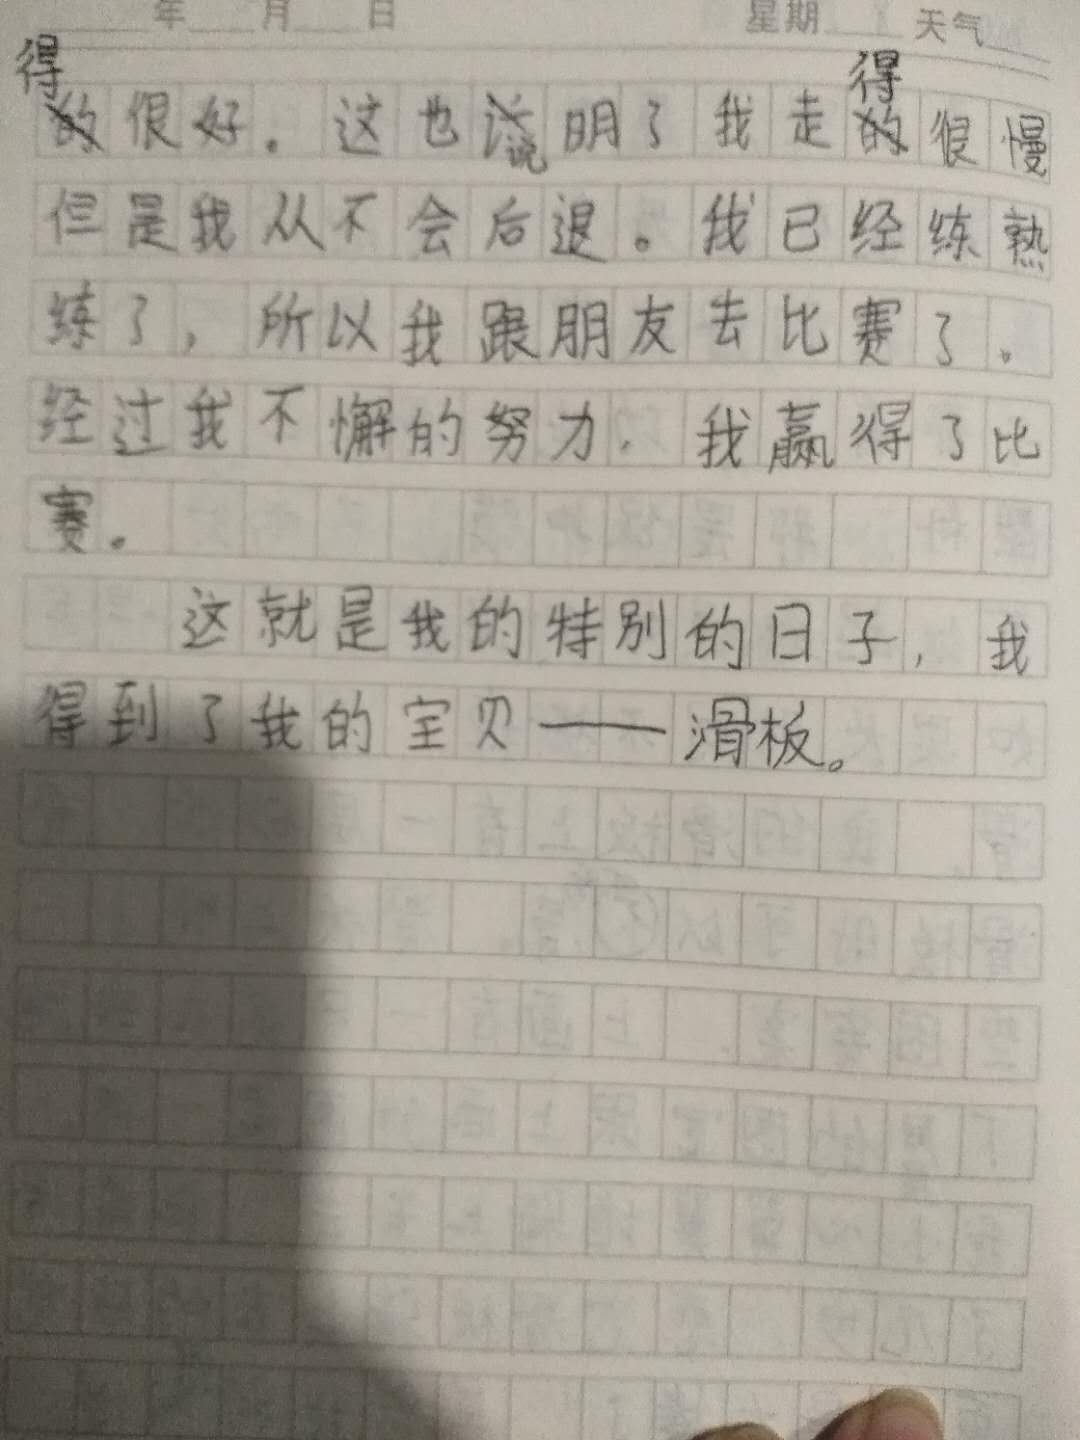 年 月 日 星期 天气
得很好．这也说明了我走得很慢
但是我从不会后退。我已经练熟
练了，所以我跟朋友去比赛了。
经过我不懈的努力，我赢得了比
赛。
这就是我的特别的日子，我
得到了我的宝贝——滑板。